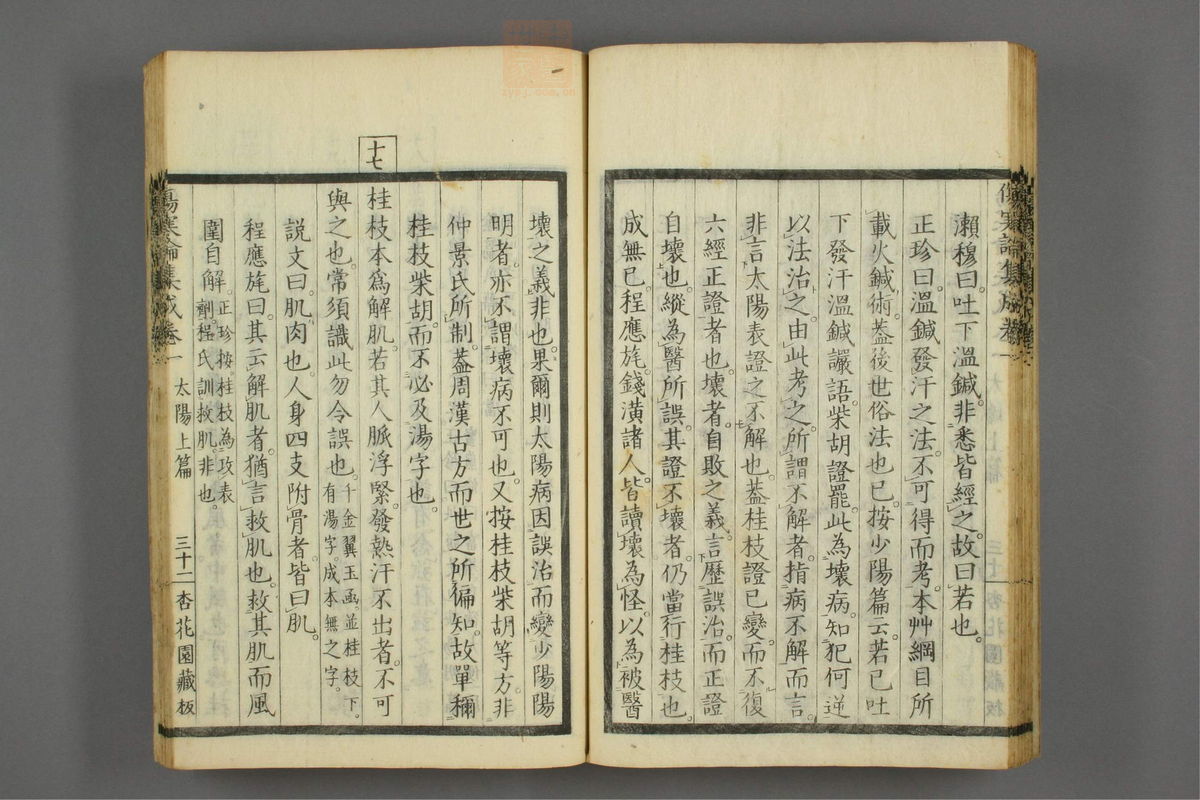 瀨穆曰。吐下溫鍼。非悉皆經之。故曰若也。
正珍曰。溫鍼發汗之法。不可得而考。本艸綱目所
載火鍼術。蓋後世俗法也已。按少陽篇云。若已吐
下發汗溫鍼讝語。柴胡證罷。此為壞病。知犯何逆
以法治之。由此考之。所謂不解者。指病不解而言。
非言太陽表證之不解也。蓋桂枝證已變。而不復
六經正證者也。壞者。自敗之義。言歷誤治。而正證
自壞也。縱為醫所誤。其證不壞者。仍當行桂枝也。
成無已。程應旄。錢潢諸人。皆讀壞為怪。以為被醫
壞之義。非也。果爾則太陽病因誤治而變少陽陽
明者。亦不謂壞病不可也。又按桂枝柴胡等方。非
仲景氏所制。蓋周漢古方而世之所徧知。故單稱
桂枝柴胡。而不必及湯字也。
十七
桂枝本爲解肌。若其人脈浮緊。發熱汗不出者。不可
與之也。常須識此勿令誤也。千金翼玉函。並桂枝下。有湯字。成本無之字。
說文曰。肌肉也。人身四支附骨者。皆曰肌。
程應旄曰。其云解肌者。猶言救肌也。救其肌而風
圍自解。正珍按。桂枝為攻表劑。程氏訓救肌。非也。
傷寒論集成卷一
太陽上篇
三十二
杏花園藏板